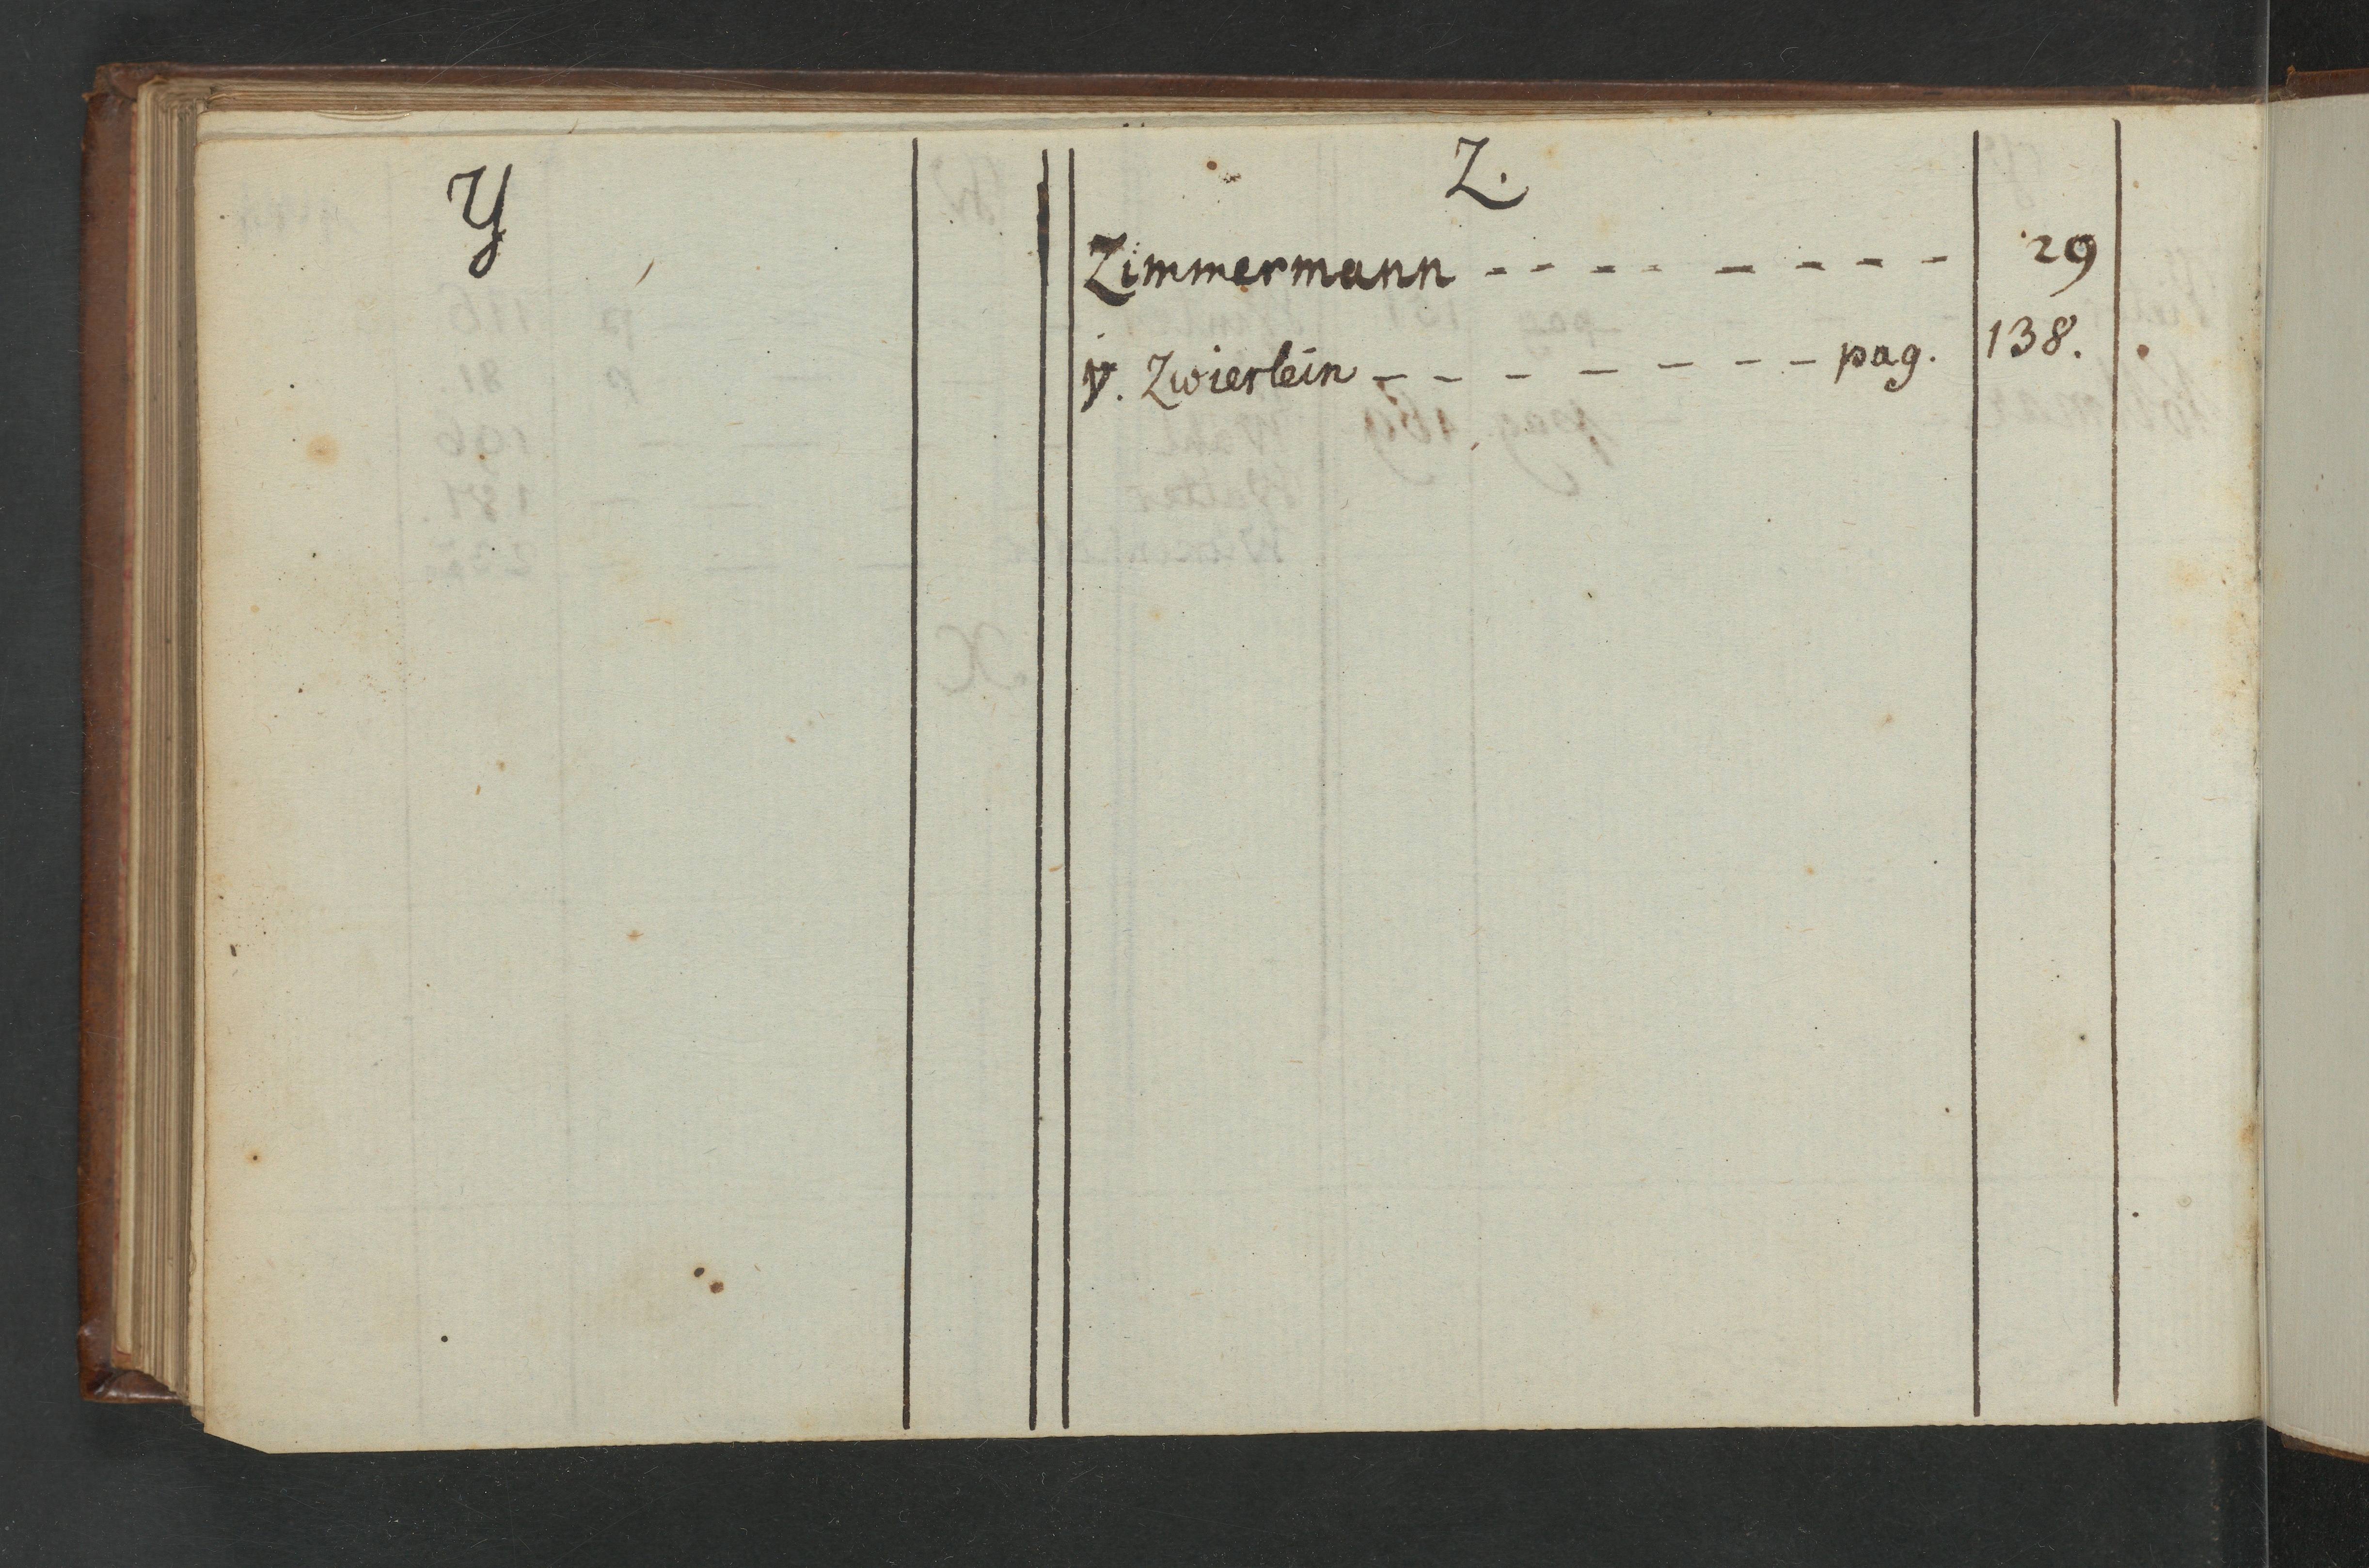 Y
Z.
Zimmermann - - - - - - - - 29
v. Zwierlein - - - - - - - - pag. 138.